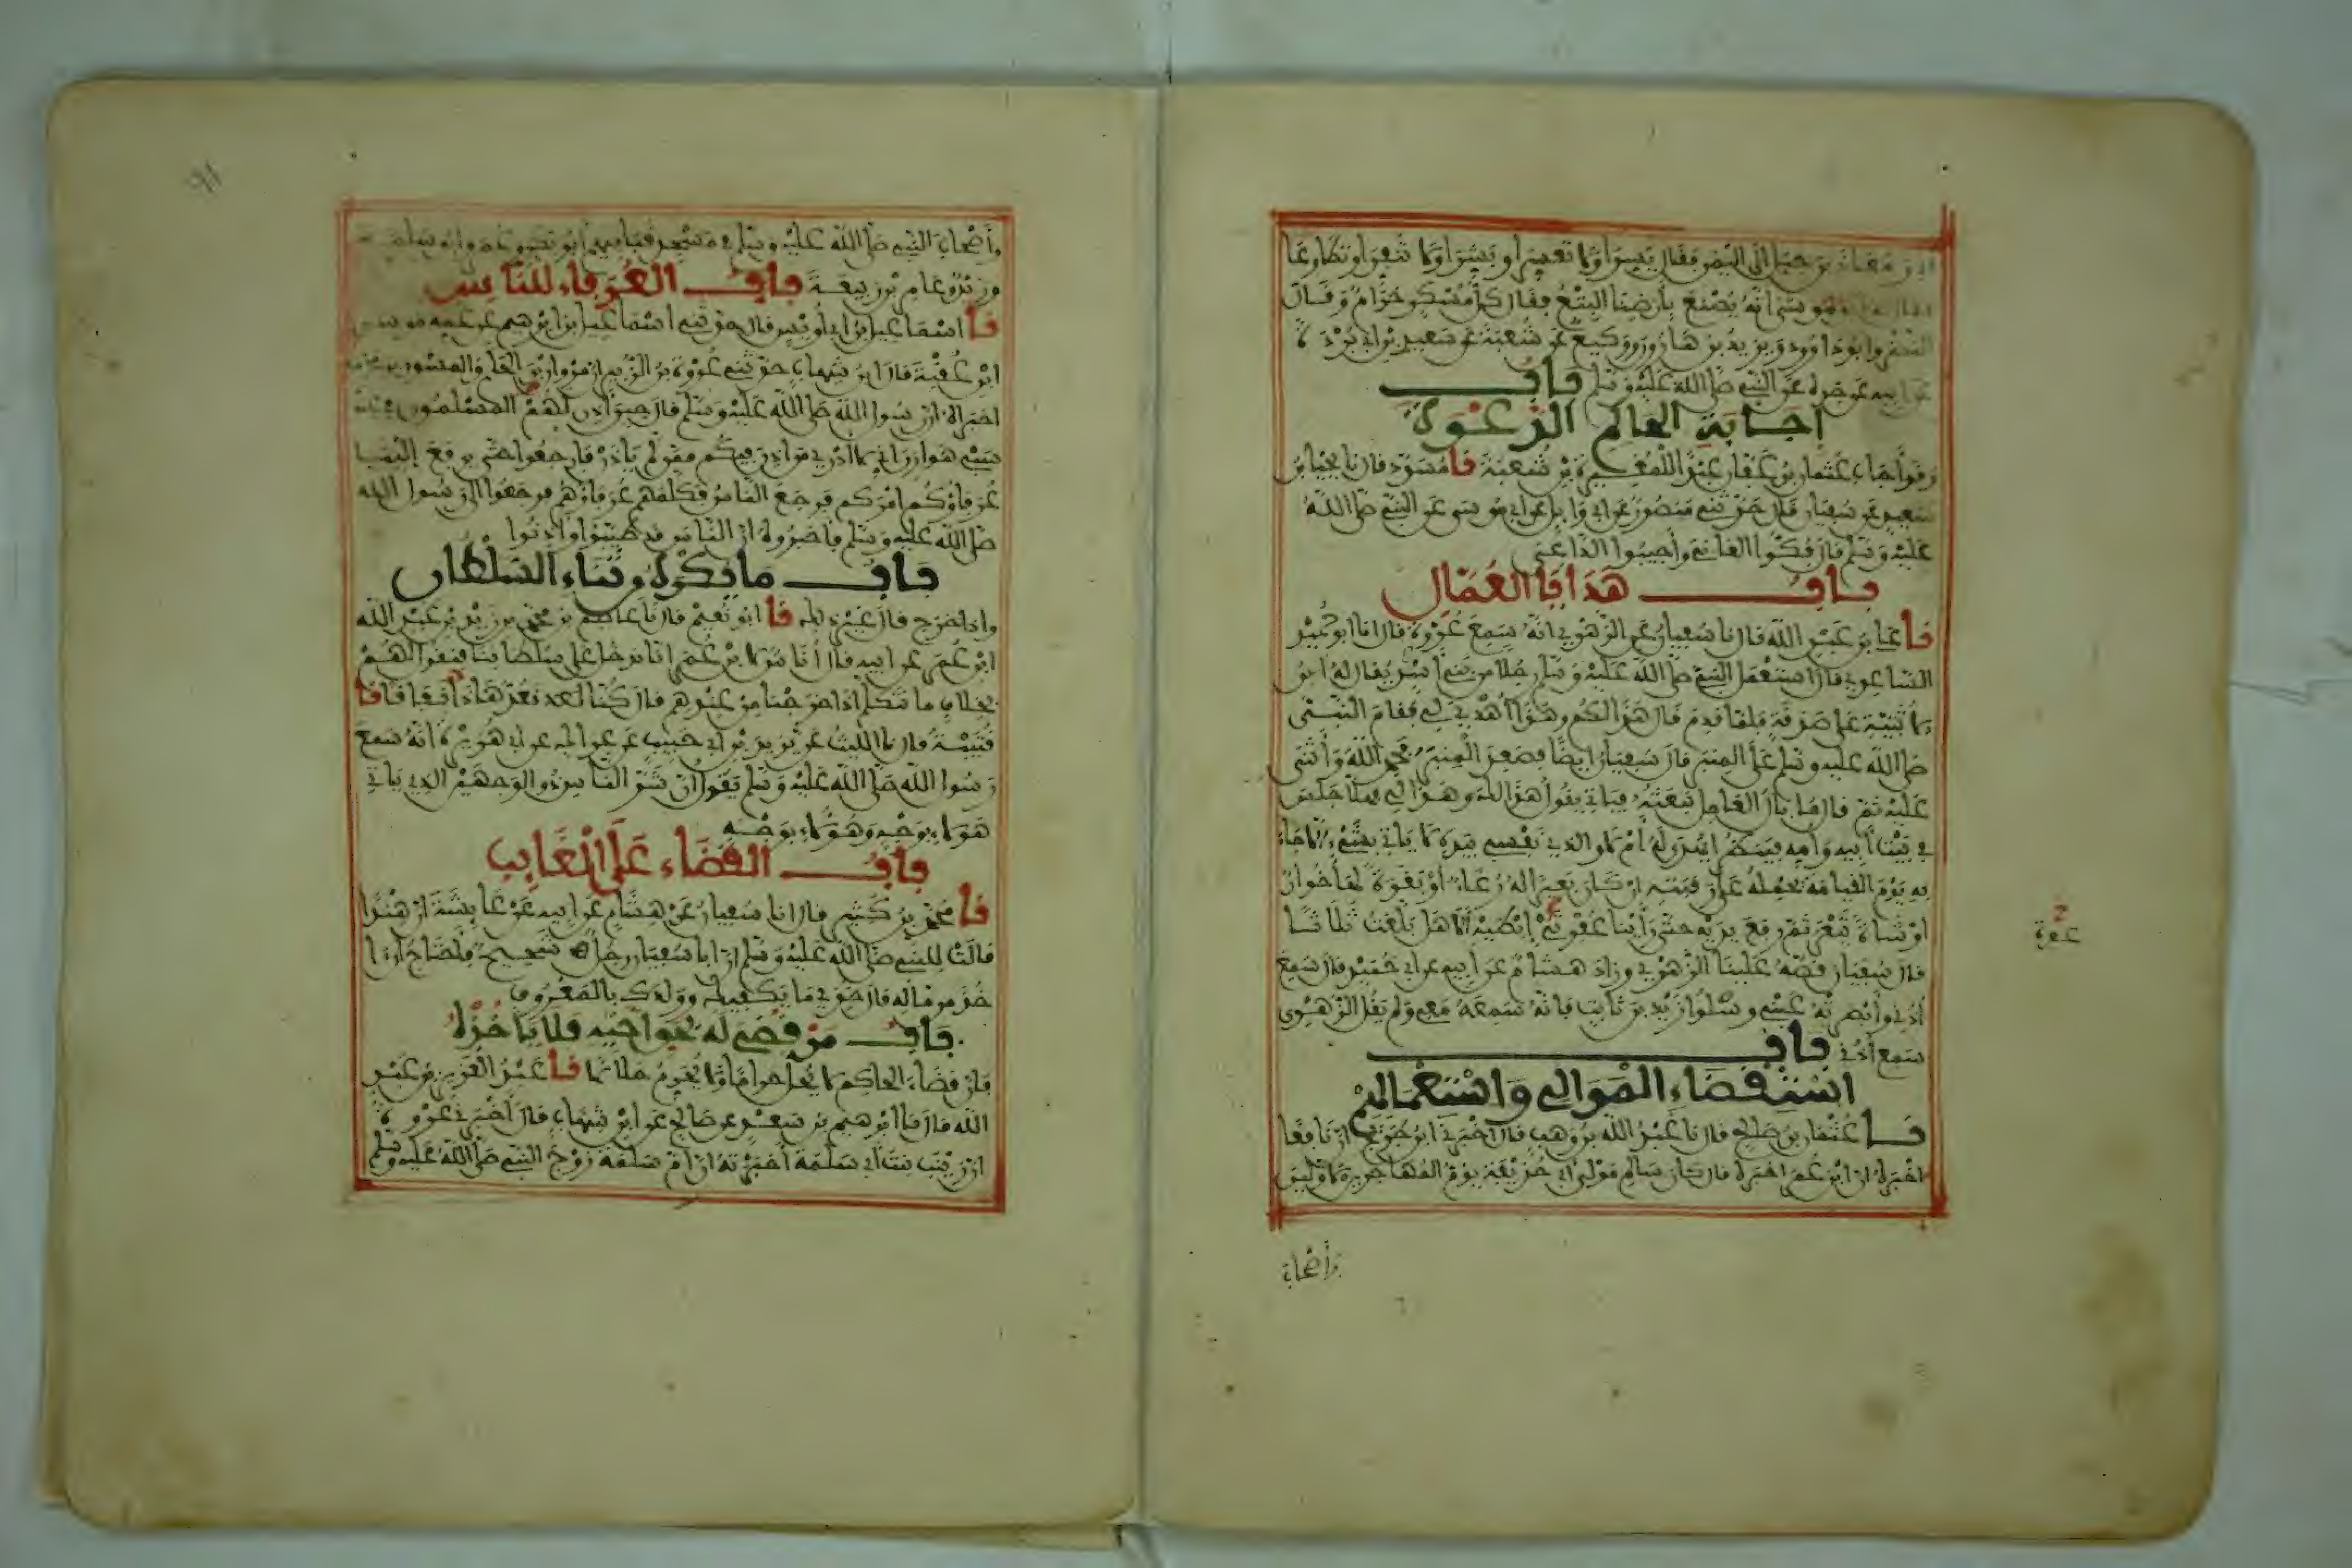 ومعاذ بن جبل إلى اليمن فقال يسرا ولا تعسرا وبشرا ولا تنفرا وتطاوعا
فقال له أبو موسى إنه يصنع بأرضنا البتع فقال كل مسكر حرام وقال
النضر وابو داوود ويزيد بن هارون ووكيع عن شعبة عن سعيد بن أبي بردة
عن أبيه عن جده عن النبي صلى الله عليه وسلم باب
إجابة الحاكم الدعوة
وقد أجاب عثمان بن عفان عبدا للمغيرة بن شعبة نا مسدد قال نا يحيى بن
سعيد عن سفيان قال حدثني منصور عن أبي وائل عن أبي موسى عن النبي صلى الله
عليه وسلم قال فكوا العاني وأجيبوا الداعي
باب هدايا العمال
نا علي بن عبد الله قال نا سفيان عن الزهري أنه سمع عروة قال انا ابو حميد
الساعدي قال استعمل النبي صلى الله عليه وسلم رجلا من بني أسد يقال له ابن
الأتبية على صدقة فلما قدم قال هذا لكم وهذا أهدي لي فقام النبي
صلى الله عليه وسلم على المنبر قال سفيان ايضا فصعد المنبر فحمد الله وأثنى
عليه ثم قال ما بال العامل نبعثه فيأتي يقول هذا لك وهذا لي فهلا جلس
في بيت أبيه وأمه فينظر أيهدى له أم لا والذي نفسي بيده لا يأتي بشيء إلا جاء
به يوم القيامة يحمله على رقبته إن كان بعيرا له رغاء أو بقرة لها خوار
او شاة تيعر ثم رفع يديه حتى رأينا عفرتي إبطيه ألا هل بلغت ثلاثا
قال سفيان قصه علينا الزهري وزاد هشام عن أبيه عن أبي حميد قال سمع
أذني وأبصرته عيني وسلوا زيد بن ثابت فإنه سمعه معي ولم يقل الزهري
سمع أذني باب
استقضاء الموالي واستعمالهم
نا عثمان بن صالح قال نا عبد الله بن وهب قال أخبرني ابن جريج ان نافعا
اخبره ان ابن عمر اخبره قال كان سالم مولى أبي حذيفة يؤم المهاجرين الأولين
وأصحاب
عفرة
وأصحاب النبي صلى الله عليه وسلم في مسجد قباء فيهم أبو بكر وعمر وأبو سلمة
وزيد وعامر بن ربيعة باب العرفاء للناس
نا اسماعيل بن أبي أويس قال حدثني اسماعيل بن ابرهيم عن عمه موسى
ابن عقبة قال ابن شهاب حدثني عروة بن الزبير ان مروان بن الحكم والمسور بن مخرمة
اخبراه ان رسول الله صلى الله عليه وسلم قال حين أذن لهم المسلمون في عتق
سبي هوازن إني لا أدري من أذن فيكم ممن لم يأذن فارجعوا حتى يرفع إلينا
عرفاؤكم أمركم فرجع الناس فكلمهم عرفاؤهم فرجعوا إلى رسول الله
صلى الله عليه وسلم فأخبروه أن الناس قد طيبوا وأذنوا
باب ما يكره من ثناء السلطان
واذا خرج قال غير ذلك نا ابو نعيم قال نا عاصم بن محمد بن زيد بن عبد الله
ابن عمر عن أبيه قال أناس لابن عمر إنا ندخل على سلطاننا فنقول لهم
بخلاف ما نتكلم إذا خرجنا من عندهم قال كنا نعد هذا نفاقا نا
قتيبة قال نا الليث عن يزيد بن أبي حبيب عن عراك عن أبي هريرة أنه سمع
رسول الله صلى الله عليه وسلم يقول إن شر الناس ذو الوجهين الذي يأتي
هؤلاء بوجه وهؤلاء بوجه
باب القضاء على الغايب
نا محمد بن كثير قال انا سفيان عن هشام عن أبيه عن عايشة ان هندا
قالت للنبي صلى الله عليه وسلم إن ابا سفيان رجل شحيح فأحتاج أن
خذ من ماله قال خذي ما يكفيك وولدك بالمعروف
باب من قضي له بحق أخيه فلا يأخذه
فإن قضاء الحاكم لا يحل حراما ولا يحرم حلالا نا عبد العزيز بن عبد
الله قال نا ابرهيم بن سعد عن صالح عن ابن شهاب قال أخبرني عروة
ان زينب بنت أبي سلمة أخبرته ان أم سلمة زوج النبي صلى الله عليه وسلم